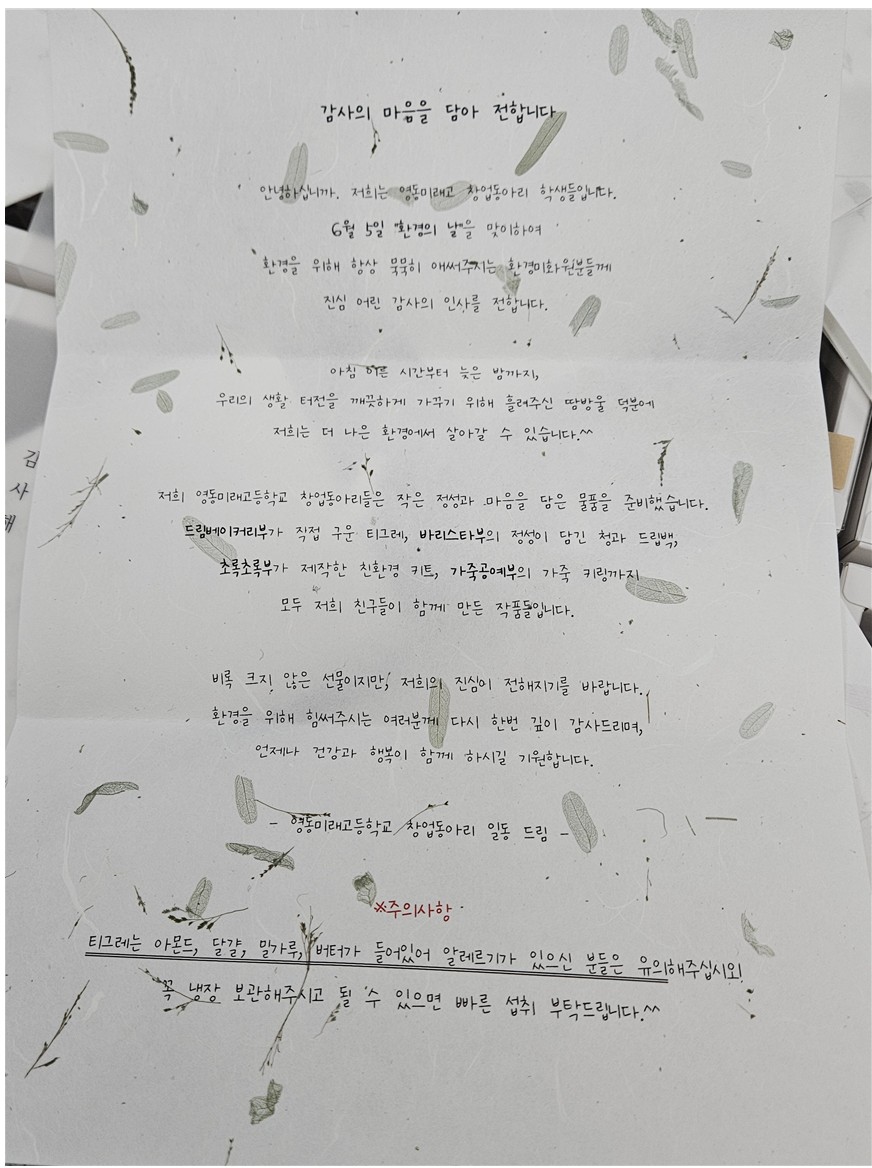 감사의 마음을 담아 전합니다
안녕하십니까. 저희는 영동미래고 창업동아리 학생들입니다.
6월 5일 환경의 날을 맞이하여
환경을 위해 항상 묵묵히 애써주시는 환경미화원분들께
진심 어린 감사의 인사를 전합니다.
아침 이른 시간부터 늦은 밤까지,
우리의 생활 터전을 깨끗하게 가꾸기 위해 흘려주신 땀방울 덕분에
저희는 더 나은 환경에서 살아갈 수 있습니다.^^
저희 영동미래고등학교 창업동아리들은 작은 정성과 마음을 담은 물품을 준비했습니다.
드림베이커리부가 직접 구운 티그레, 바리스타부의 정성이 담긴 청과 드립백,
초록초록부가 제작한 친환경 키트, 가죽공예부의 가죽 키링까지
모두 저희 친구들이 함께 만든 작품들입니다.
비록 크지 않은 선물이지만, 저희의 진심이 전해지기를 바랍니다.
환경을 위해 힘써주시는 여러분께 다시 한번 깊이 감사드리며,
언제나 건강과 행복이 함께 하시길 기원합니다.
- 영동미래고등학교 창업동아리 일동 드림 -
※주의사항
티그레는 아몬드, 달걀, 밀가루, 버터가 들어있어 알레르기가 있으신 분들은 유의해주십시오!
꼭 냉장 보관해주시고 될 수 있으면 빠른 섭취 부탁드립니다.^^
김
사
해